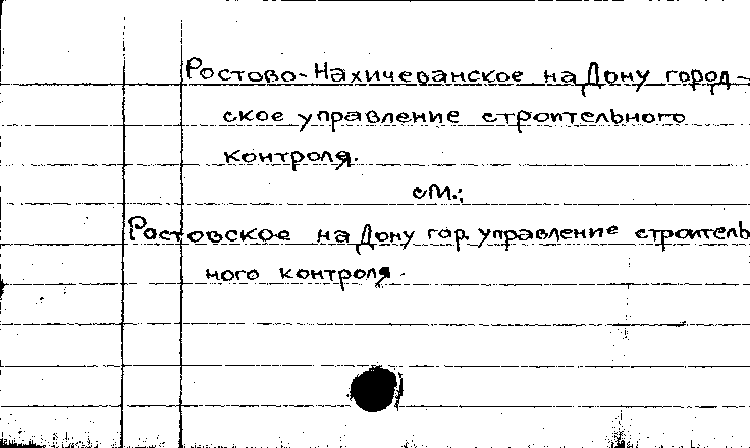 Ростово-Нахичеванское на Дону город-
ское управление строительного
контроля.
см.:
Ростовское на Дону гор. управление строитель
ного контроля.